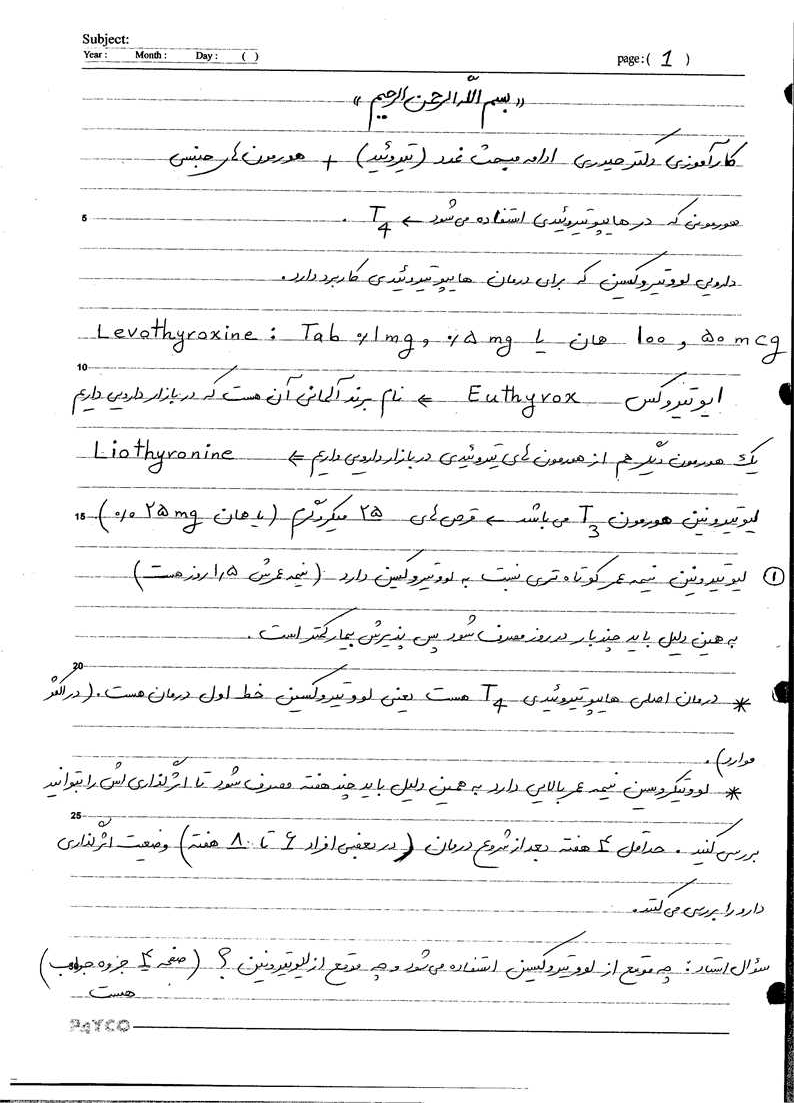 Subject:
Year : Month : Day : ( )
page: ( 1 )
«بسم الله الرحمن الرحیم»
کارآموزی دکتر حیدری ادامه مبحث غدد (تیروئید) + هورمون های جنسی
5
هورمونی که در هایپوتیروئیدی استفاده می شود ← T4 .
داروی لووتیروکسین که برای درمان هایپوتیروئیدی کاربرد دارد.
Levothyroxine : Tab ۰/۱mg و ۰/۰۵ mg یا همان ۱۰۰ و ۵۰ mcg
10
ایوتیروکس Euthyrox ← نام برند آلمانی آن هست که در بازار دارویی داریم
یک هورمون دیگر هم از هورمون های تیروئیدی در بازار دارویی داریم ← Liothyronine
15
لیوتیرونین هورمون T3 می باشد ← قرص های ۲۵ میکروگرم (یا همان ۰/۰۲۵ mg)
① لیوتیرونین نیمه عمر کوتاه تری نسبت به لووتیروکسین دارد (نیمه عمرش ۱,۵ روز هست)
به همین دلیل باید چند بار در روز مصرف شود پس پذیرش بیمار کمتر است .
20
* درمان اصلی هایپوتیروئیدی T4 هست یعنی لووتیروکسین خط اول درمان هست . (در اکثر
موارد).
* لووتیکروسین نیمه عمر بالایی دارد به همین دلیل باید چند هفته مصرف شود تا اثرگذاری اش را بتوانید
25
بررسی کنید . حداقل ۴ هفته بعد از شروع درمان (در بعضی افراد ۶ تا ۸ هفته) وضعیت اثرگذاری
دارو را بررسی می کنند.
سؤال استاد : چه موقع از لووتیروکسین استفاده می شود و چه موقع از لیوتیرونین ؟ (صفحه ۴ جزوه جواب
هست)
PAYCO